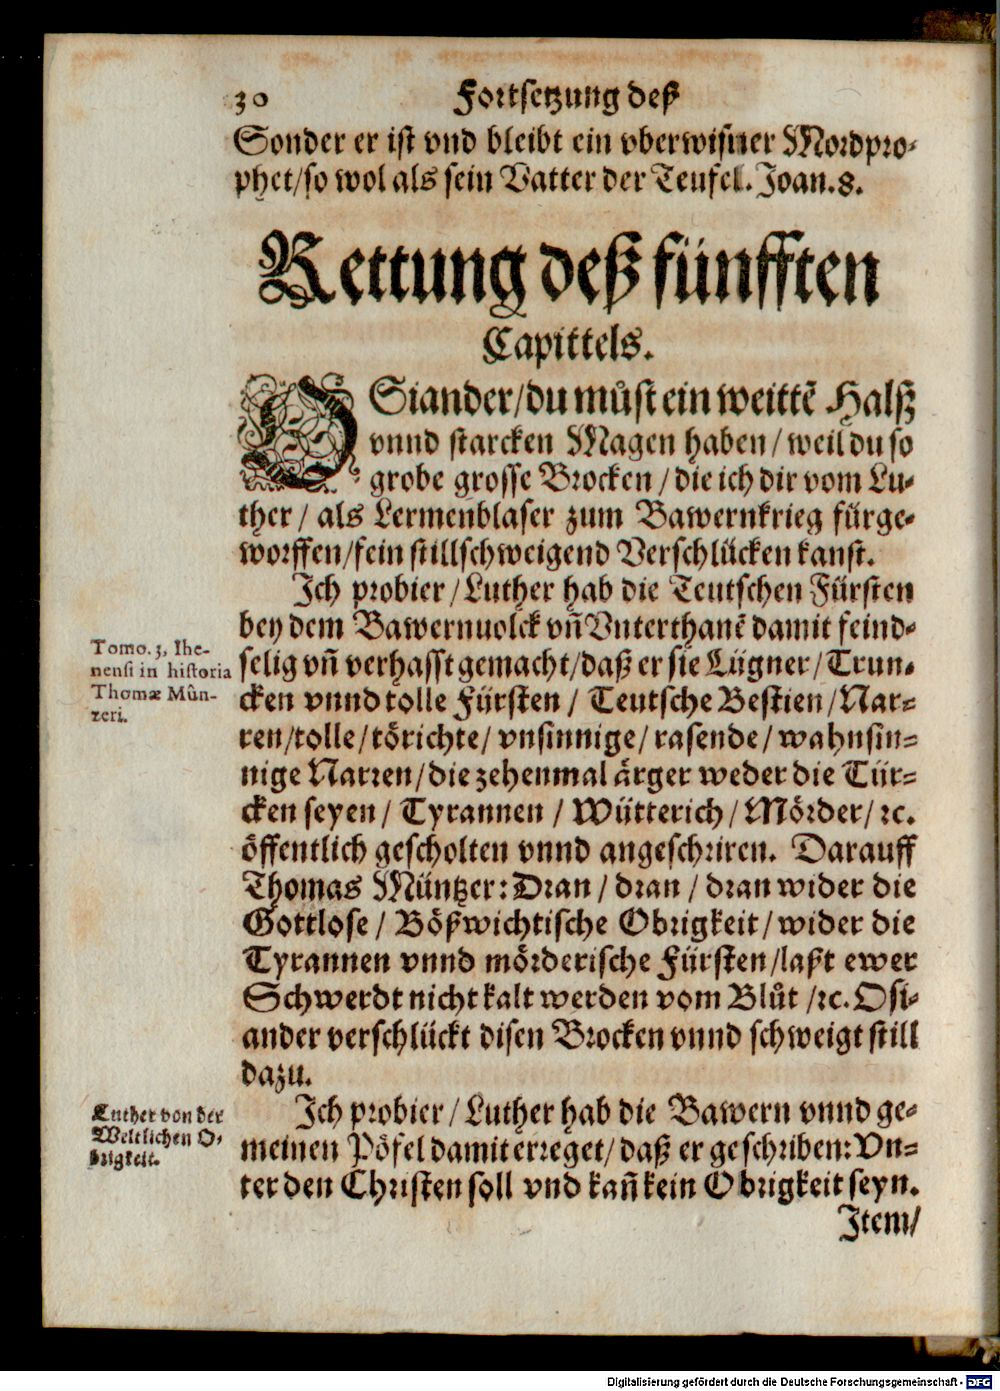 30 Fortsetzung deß
Sonder er ist vnd bleibt ein vberwisner Mordpro-
phet/so wol als sein Vatter der Teufel. Joan. 8.
Rettung deß fünfften
Capittels.
OSiander/du můst ein weittē Halß
vnnd starcken Magen haben/weil du so
grobe grosse Brocken/die ich dir vom Lu-
ther/als Lermenblaser zum Bawernkrieg fürge-
worffen/fein stillschweigend Verschlücken kanst.
Ich probier/Luther hab die Teutschen Fürsten
bey dem Bawernuolck vñ Vnterthanē damit feind-
Tomo. 3, Ihe-
nensi in historia
Thomæ Mûn-
zeri.
selig vñ verhasst gemacht/daß er sie Lügner/Trun-
cken vnnd tolle Fürsten/Teutsche Bestien/Nar-
ren/tolle/törichte/vnsinnige/rasende/wahnsin-
nige Narren/die zehenmal ärger weder die Tür-
cken seyen/Tyrannen/Wütterich/Mörder/ꝛc.
öffentlich gescholten vnnd angeschriren. Darauff
Thomas Müntzer: Dran/dran/dran wider die
Gottlose/Bößwichtische Obrigkeit/wider die
Tyrannen vnnd mörderische Fürsten/laßt ewer
Schwerdt nicht kalt werden vom Blůt/ꝛc. Osi-
ander verschlückt disen Brocken vnnd schweigt still
dazu.
Luther von der
Weltlichen O-
brigkeit.
Ich probier/Luther hab die Bawern vnnd ge-
meinen Pöfel damit erreget/daß er geschriben: Vn-
ter den Christen soll vnd kañ kein Obrigkeit seyn.
Item/
Digitalisierung gefördert durch die Deutsche Forschungsgemeinschaft - DFG